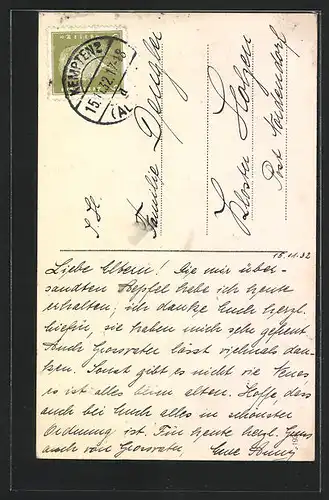 KEMPTEN 2
(AL
S. H.
Familie Dengler
Kloster Holzen
Post Nordendorf
15.11.32
Liebe Eltern! Die mir über-
sandten Aepfel habe ich heute
erhalten; ich danke Euch herzl.
hiefür, sie haben mich sehr gefreut
Auch Grossvater lässt vielmals dan-
ken. Sonst gibt es nicht viel Neues
es ist alles beim alten. Hoffe, dass
auch bei Euch alles in schönster
Ordnung ist. Für heute herzl. Gruss
auch von Grossvater Eure